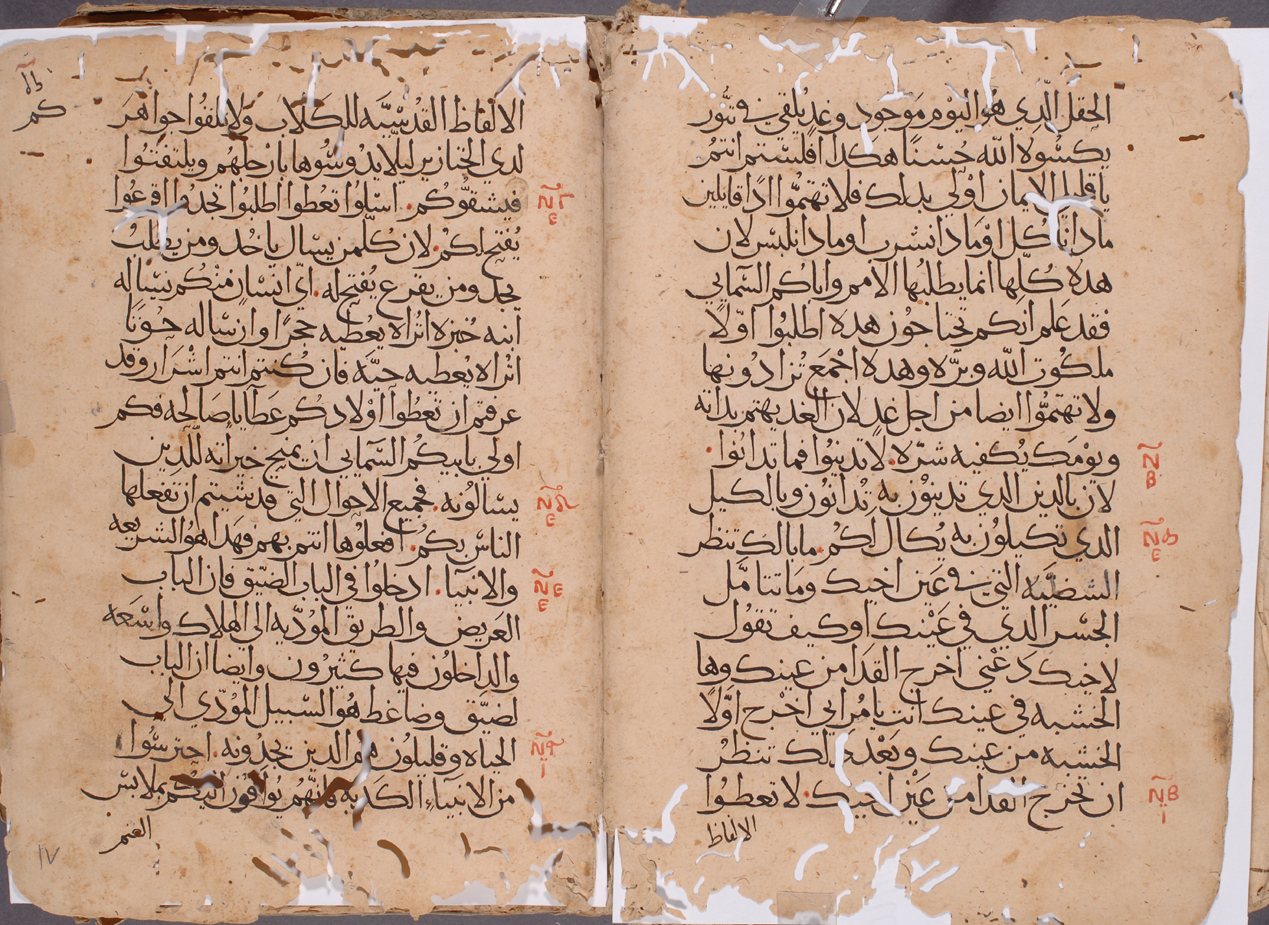 الحقل الذي هو اليوم موجود وغد يلقي في تنور
يكسوه الله حسنًا هكدا افلستم انتم
يا قليلي الايمان اولي بدلك فلا تهتموا ادًا قايلين
مادا ناكل او مادا نشرب او مادا نلبس لان
هده كلها انما يطلبها الامم واباكم السمايي
فقد علم انكم تحتاجون هده اطلبوا اولًا
ملكوت الله وبره وهده اجمع تزادونها
ولا تهتموا ايضا من اجل غد لان الغد يهتم بداته
ويومك يكفيه شره. لا تدينوا فما تدانوا.
لان بالدين الدي تدينون به تدانون وبالكيل
الدي تكيلون به يكال لكم. ما بالك تنظر
الشظيه التي في عين اخيك وما تتامل
الجسر الدي في عينك او كيف تقول
لاخيك دعني اخرج القدا من عينك وها
الخشبه في عينك انت يا مرايي اخرج اولًا
الخشبه من عينك وبعد دالك تنظر
ان تخرج القدا من عين اخيك. لا تعطوا
الالفاظ
كم
الالفاظ القدسيه للكلاب ولا تلقوا جواهر
لدي الخنازير ليلا يدوسوها بارجلهم ويلتفتوا
فيشقوكم. اسلوا تعطوا اطلبوا تجدوا اقرعوا
يفتح لكم. لان كلمن يسال ياخد ومن يطلب
يجد ومن يقرع يفتح له. اي انسان منكم يساله
ابنه خبزه اتراه يعطيه حجرًا وان ساله حوتًا
اتراه يعطيه حيه فان كنتم انتم اشرار وقد
عرفتم ان تعطوا اولادكم عطايا صالحه فكم
اولي بابيكم السمايي ان يمنح خيراته للدين
يسالونه. فجميع الاحوال التي قد شيتم ان تفعلها
الناس بكم. افعلوها انتم بهم فهدا هو الشريعه
والانبيا. ادخلوا في الباب الضيق فان الباب
العريض والطريق الموديه الي الهلاك واسعه
والداخلون فيها كثيرون وايضا ان الباب
لضيق وضاغط هو السبيل المودي الي
الحياه وقليلون هم الدين يجدونه. احترسوا
من الانبياء الكدبه فانهم يوافون اليكم بملابس
الغنم
١٧